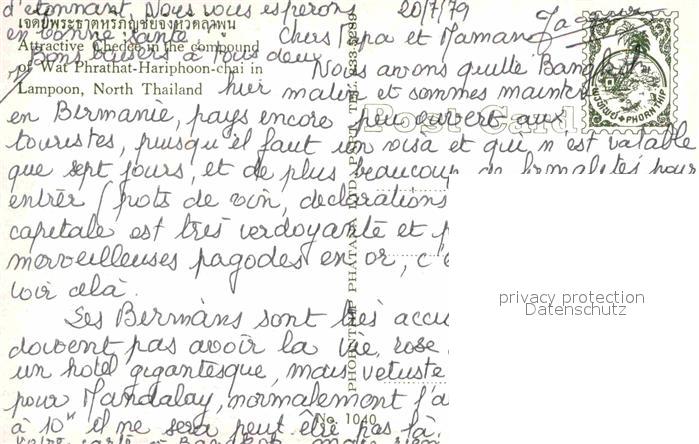 d'étonnant. Nous vous espérons
en bonne santé
Bons baisers à tous deux
เจดีย์พระธาตุหริภุญชัยจังหวัดลำพูน
Attractive Chedee in the compound
of Wat Phrathat-Hariphoon-chai in
Lampoon, North Thailand
20/7/79
Chers Papa et Maman
Nous avons quitté
hier matin et sommes
en Birmanie, pays encore peu ouvert aux
touristes, puisqu'il faut un visa et qui n'est valable
que sept jours, et de plus beaucoup de formalités pour
entrer (pots de vin, déclarations
capitale est très verdoyante et
merveilleuses pagodes en or, c'
voir celà.
Les Birmans sont très
doivent pas avoir la vie rose
un hotel gigantesque, mais vetuste
pour Mandalay, normalement
à 10H il ne sera peut être pas là,
Post Card
PHORNTHIP PHATANA LTD.
PHORN THIP
No. 1040
privacy protection
Datenschutz